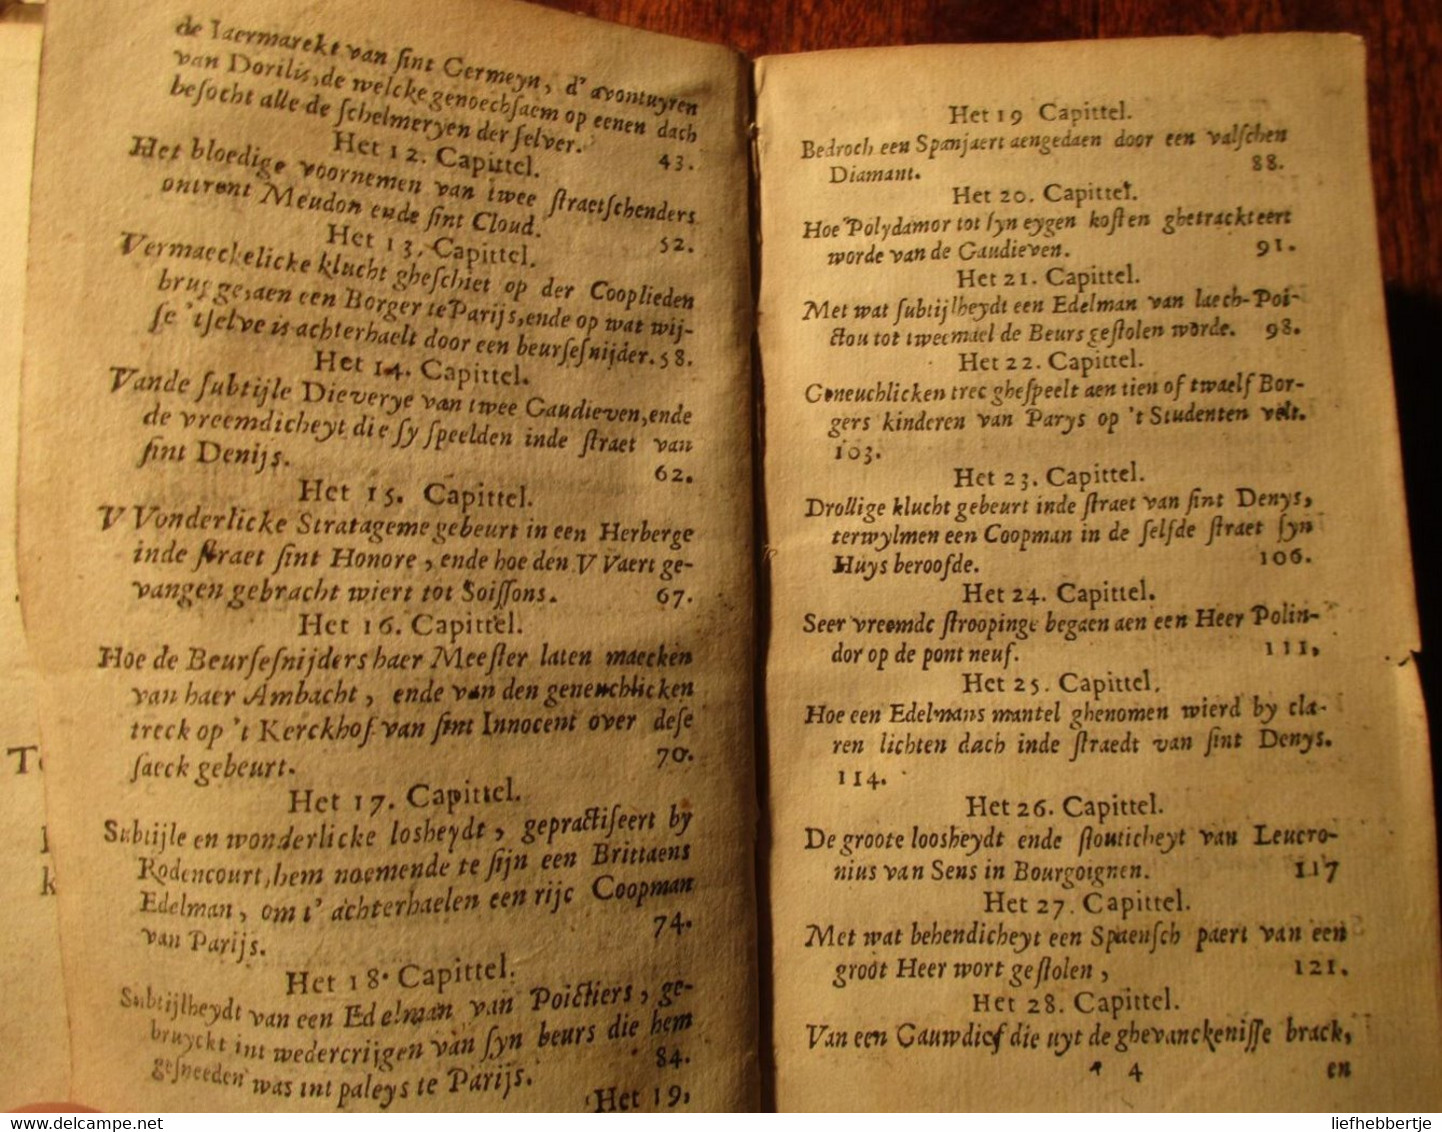 de Iaermarekt van ſint Germeyn, d' avontuyren
van Dorilis, de welcke genoechſaem op eenen dach
beſocht alle de ſchelmeryen der ſelver. 43.
Het 12. Capittel.
Het bloedige voornemen van twee ſtraetſchenders
ontrent Meudon ende ſint Cloud. 52.
Het 13. Capittel.
Vermaeckelicke klucht gheſchiet op der Cooplieden
brug gedaen een Borger te Parijs, ende op wat wij-
ſe 'tſelve is achterhaelt door een beurſeſnijder. 58.
Het 14. Capittel.
Vande ſubtijle Dieverye van twee Gaudieven, ende
de vreemdicheyt die ſy ſpeelden inde ſtraet van
ſint Denijs. 62.
Het 15. Capittel.
VVonderlicke Stratageme gebeurt in een Herberge
inde ſtraet ſint Honore, ende hoe den VVaert ge-
vangen gebracht wiert tot Soiſſons. 67.
Het 16. Capittel.
Hoe de Beurſeſnijders haer Meeſter laten maecken
van haer Ambacht, ende van den geneuchlicken
treck op 't Kerckhof van ſint Innocent over deſe
ſaeck gebeurt. 70.
Het 17. Capittel.
Subtijle en wonderlicke losheydt, gepractiſeert by
Rodencourt, hem noemende te ſijn een Brittaens
Edelman, om t' achterhaelen een rijc Coopman
van Parijs. 74.
Het 18. Capittel.
Subtijlheydt van een Edelman van Poictiers, ge-
bruyckt int wedercrijgen van ſyn beurs die hem
geſneeden was int paleys te Parijs. 84.
Het 19,
Het 19 Capittel.
Bedroch een Spanjaert aengedaen door een valſchen
Diamant. 88.
Het 20. Capittel.
Hoe Polydamor tot ſyn eygen koſten ghetrackteert
worde van de Gaudieven. 91.
Het 21. Capittel.
Met wat ſubtijlheydt een Edelman van laech-Poi-
ctou tot tweemael de Beurs geſtolen worde. 98.
Het 22. Capittel.
Geneuchlicken trec gheſpeelt aen tien of twaelf Bor-
gers kinderen van Parys op 't Studenten velt.
103.
Het 23. Capittel.
Drollige klucht gebeurt inde ſtraet van ſint Denys,
terwylmen een Coopman in de ſelfde ſtraet ſyn
Huys beroofde. 106.
Het 24. Capittel.
Seer vreemde ſtroopinge begaen aen een Heer Polin-
dor op de pont neuf. 111,
Het 25. Capittel.
Hoe een Edelmans mantel ghenomen wierd by cla-
ren lichten dach inde ſtraedt van ſint Denys.
114.
Het 26. Capittel.
De groote loosheydt ende ſtouticheyt van Leucro-
nius van Sens in Bourgoignen. 117
Het 27. Capittel.
Met wat behendicheyt een Spaenſch paert van een
groot Heer wort geſtolen, 121.
Het 28. Capittel.
Van een Gauwdief die uyt de ghevanckeniſſe brack,
* 4 en
liefhebbertje